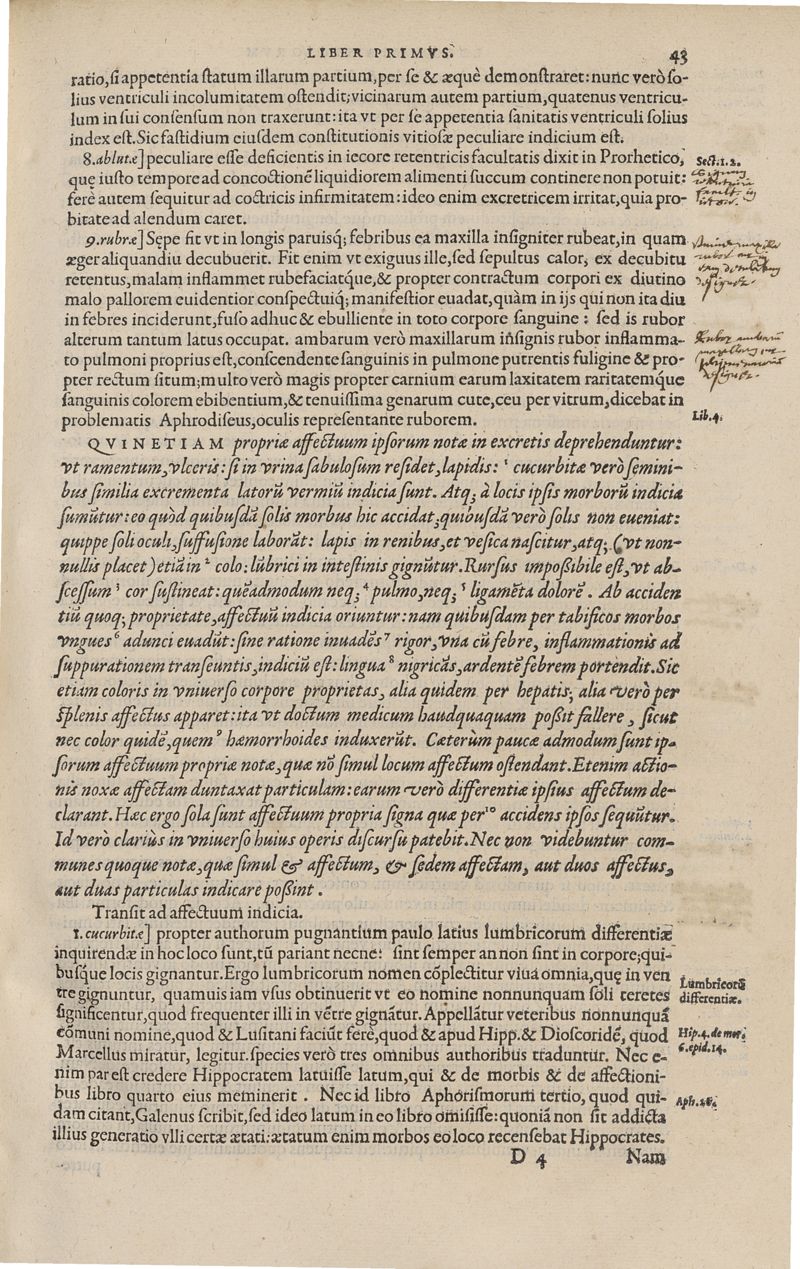 LIBER PRIMVS.
43
ratio,si appetentia statum illarum partium,per se & æquè demonstraret:nunc verò so-
lius ventriculi incolumitatem ostendit;vicinarum autem partium,quatenus ventricu-
lum in sui consensum non traxerunt:ita vt per se appetentia sanitatis ventriculi solius
index est.Sic fastidium eiusdem constitutionis vitiosæ peculiare indicium est.
8.ablutæ] peculiare esse deficientis in iecore retentricis facultatis dixit in Prorhetico,
Sect.1.2.
quę iusto tempore ad concoctionē liquidiorem alimenti succum continere non potuit:
ferè autem sequitur ad coctricis infirmitatem:ideo enim excretricem irritat,quia pro-
bitate ad alendum caret.
9.rubræ] Sępe fit vt in longis paruisq; febribus ea maxilla insigniter rubeat,in quam
æger aliquandiu decubuerit. Fit enim vt exiguus ille,sed sepultus calor, ex decubitu
retentus,malam inflammet rubefaciatq́ue,& propter contractum corpori ex diutino
malo pallorem euidentior conspectuiq; manifestior euadat,quàm in ijs qui non ita diu
in febres inciderunt,fuso adhuc & ebulliente in toto corpore sanguine : sed is rubor
alterum tantum latus occupat. ambarum verò maxillarum insignis rubor inflamma-
to pulmoni proprius est,conscendente sanguinis in pulmone putrentis fuligine & pro-
pter rectum situm;multo verò magis propter carnium earum laxitatem raritatemq́ue
sanguinis colorem ebibentium,& tenuissima genarum cute,ceu per vitrum,dicebat in
problematis Aphrodiseus,oculis repræsentante ruborem.
Lib.4.
QVINETIAM propriæ affectuum ipsorum notæ in excretis deprehenduntur:
vt ramentum,vlceris:si in vrina sabulosum residet,lapidis: 1 cucurbitæ verò semini-
bus similia excrementa latorū vermiū indicia sunt. Atq; à locis ipsis morborū indicia
sumūtur:eo quòd quibusdā solis morbus hic accidat,quibusdā verò solis non eueniat:
quippe soli oculi,suffusione laborāt: lapis in renibus,et vesica nascitur,atq; (vt non-
nullis placet) etiā in 2 colo:lūbrici in intestinis gignūtur.Rursus impoßibile est,vt ab-
scessum 3 cor sustineat: quēadmodum neq; 4 pulmo,neq; 5 ligamēta dolorē. Ab acciden
tiū quoq; proprietate,affectuū indicia oriuntur:nam quibusdam per tabificos morbos
vngues 6 adunci euadūt:sine ratione inuadēs 7 rigor,vna cū febre, inflammationis ad
suppurationem transeuntis,indiciū est:lingua 8 nigricās,ardentē febrem portendit.Sic
etiam coloris in vniuerso corpore proprietas, alia quidem per hepatis; alia verò per
splenis affectus apparet:ita vt doctum medicum haudquaquam poßit fallere , sicut
nec color quidē,quem 9 hæmorrhoides induxerūt. Cæterùm paucæ admodum sunt ip-
sorum affectuum propriæ notæ,quæ nō simul locum affectum ostendant.Etenim actio-
nis noxæ affectam duntaxat particulam:earum verò differentiæ ipsius affectum de-
clarant.Hæc ergo sola sunt affectuum propria signa quæ per 10 accidens ipsos sequūtur.
Id verò clariùs in vniuerso huius operis discursu patebit.Nec non videbuntur com-
munes quoque notæ,quæ simul & affectum, & sedem affectam, aut duos affectus,
aut duas particulas indicare poßint.
Transit ad affectuum indicia.
1.cucurbitæ] propter authorum pugnantium paulo latius lumbricorum differentiæ
inquirendæ in hoc loco sunt,tū pariant necne: sint semper an non sint in corpore;qui-
busq́ue locis gignantur.Ergo lumbricorum nomen cōplectitur viua omnia,quę in ven
Lumbricorū
tre gignuntur, quamuis iam vsus obtinuerit vt eo nomine nonnunquam soli teretes
differentiæ.
significentur,quod frequenter illi in vētre gignātur.Appellātur veteribus nonnunquā
cōmuni nomine,quod & Lusitani faciūt ferè,quod & apud Hipp.& Dioscoridē, quod
Hip.4.de mor.
Marcellus miratur, legitur.species verò tres omnibus authoribus traduntur. Nec e-
6.epid.14.
nim par est credere Hippocratem latuisse latum,qui & de morbis & de affectioni-
bus libro quarto eius meminerit . Nec id libro Aphorismorum tertio, quod qui-
Aph.26.
dam citant,Galenus scribit,sed ideo latum in eo libro omisisse:quoniā non sit addicta
illius generatio vlli certæ ætati:ætatum enim morbos eo loco recensebat Hippocrates.
D 4
Nam